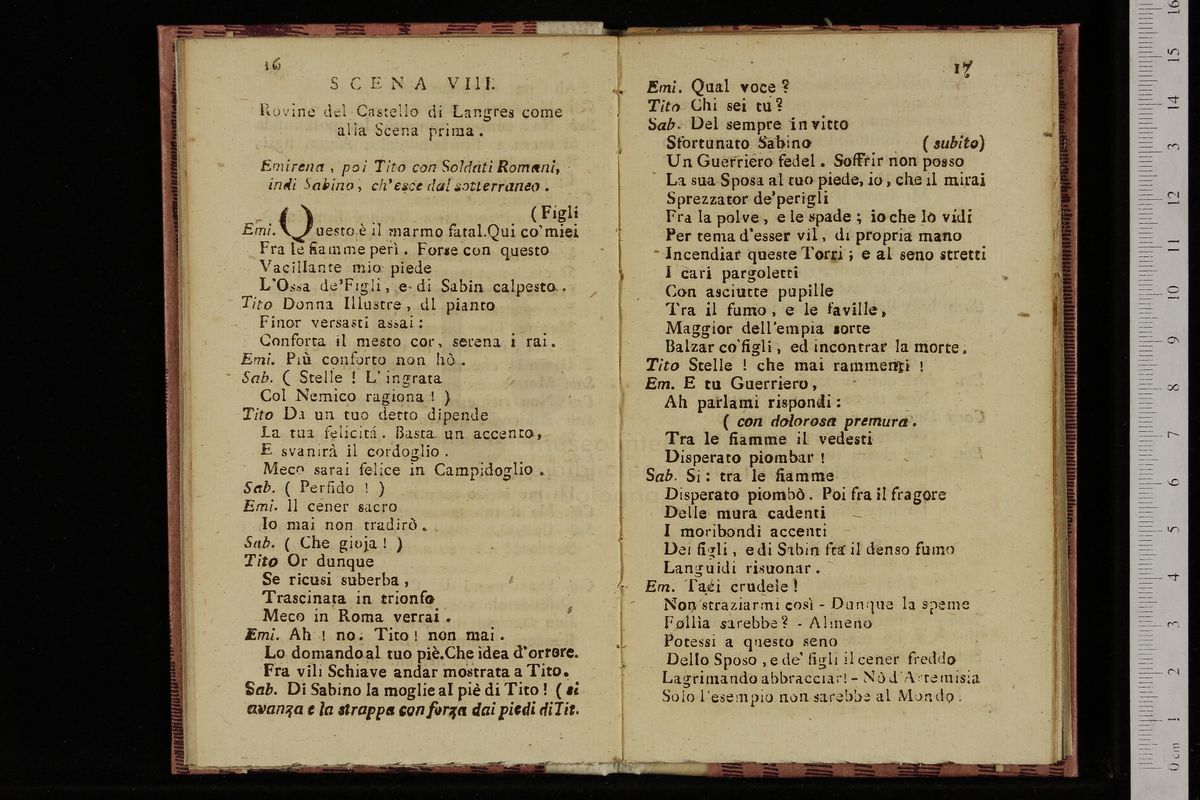 16
SCENA VIII.
Rovine del Castello di Langres come
alla Scena prima.
Emirena, poi Tito con Soldati Romani,
indi Sabino, ch'esce dal sotterraneo.
(Figli
Emi. Questo è il marmo fatal.Qui co'miei
Fra le fiamme perì. Forse con questo
Vacillante mio piede
L'Ossa de'Figli, e di Sabin calpesto.
Tito Donna Illustre, dl pianto
Finor versasti assai:
Conforta il mesto cor, serena i rai.
Emi. Più conforto non hò.
Sab. ( Stelle ! L' ingrata
Col Nemico ragiona ! )
Tito Da un tuo detto dipende
La tua felicitá. Basta un accento,
E svanirà il cordoglio.
Meco sarai felice in Campidoglio.
Sab. ( Perfido ! )
Emi. Il cener sacro
Io mai non tradirò.
Sab. ( Che gioja ! )
Tito Or dunque
Se ricusi suberba,
Trascinata in trionfo
Meco in Roma verrai.
Emi. Ah ! no. Tito ! non mai.
Lo domando al tuo piè.Che idea d'orrore.
Fra vili Schiave andar mostrata a Tito.
Sab. Di Sabino la moglie al piè di Tito ! ( si
avanza e la strappa con forza dai piedi di Tit.
17
Emi. Qual voce ?
Tito Chi sei tu ?
Sab. Del sempre invitto
Sfortunato Sabino ( subito)
Un Guerriero fedel. Soffrir non posso
La sua Sposa al tuo piede, io, che il mirai
Sprezzator de'perigli
Fra la polve, e le spade ; io che lo vidi
Per tema d'esser vil, di propria mano
Incendiar queste Torri ; e al seno stretti
I cari pargoletti
Con asciutte pupille
Tra il fumo, e le faville,
Maggior dell'empia sorte
Balzar co'figli, ed incontrar la morte.
Tito Stelle ! che mai rammenti !
Em. E tu Guerriero,
Ah parlami rispondi :
( con dolorosa premura.
Tra le fiamme il vedesti
Disperato piombar !
Sab. Si: tra le fiamme
Disperato piombò. Poi fra il fragore
Delle mura cadenti
I moribondi accenti
Dei figli, e di Sabin fra il denso fumo
Languidi risuonar.
Em. Taci crudele !
Non straziarmi così - Dunque la speme
Follia sarebbe? - Almeno
Potessi a questo seno
Dello Sposo, e de' figli il cener freddo
Lagrimando abbracciar! - Nò d'Artemisia
Solo l'esempio non sarebbe al Mondo.
0 cm 1 2 3 4 5 6 7 8 9 10 11 12 13 14 15 16